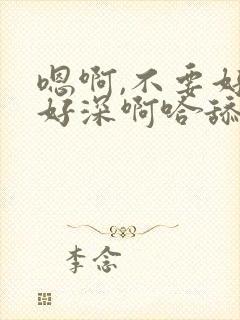 嗯啊,不要好
好深啊哈舔
李念